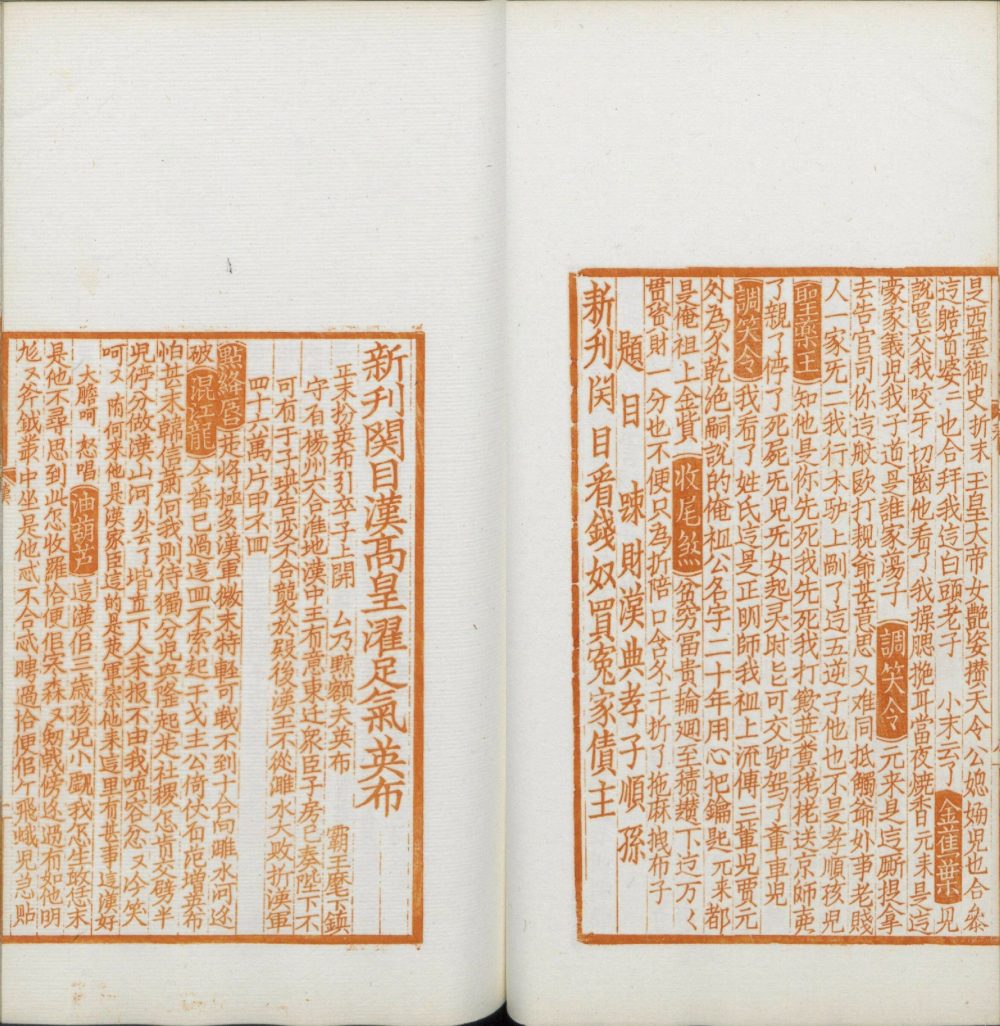 是西臺御史折末 玉皇大帝女艷姿攅天令公媳姻児也合
這皓首婆〻也合拜我這白頭老子 小末云了 金蕉葉 見
說它父我咬牙切齒他看了我揉腮撧耳當夜燒香元來是這
蒙家義児我子道是誰家蕩子 調笑令 元來是這厮提人拿
去告官司你這般毆打親爺甚意思又难同抵觸爺外事老賤
人一家死二我行木驴上剮了這五逆子他也不是孝順孩児
聖藥王 知他是你先死我先死我打 送京師
了親了停了死屍无児无女起灵時 可交驴駕了 車児
調笑令 我看了姓氏這是正明師我祖上流傳三輩児賈元
外為尒乾絶嗣說的俺祖公名字二十年用心把鑰匙元来都
是俺祖上金貲 收尾煞 貧窮冨貴輪廻至積攢下这万〻
贯資財一分也不便只為折陪口含尒千折了拖麻拽布子
題目 踈財漢典孝子順孫
新刋関目看錢奴買寃家債主
新刋関目漢高皇濯足氣英布
正末扮英布引卒子上開 厶乃黥額夫英布 霸王麾下鎮
守有楊州六合淮地漢中王有意東迁衆臣子房已奏陛下不
可有子子琪告变不合襲於殿後漢王不從雎水大敗折漢軍
四十六萬片甲不囬
點絳唇 楚將極多漢軍微末特軽可戰不到十合向雎水河逃
破 混江龍 今番已過這囬不索起干戈主公倚仗着范増英布
怕甚末韓信蕭何我則待獨分児安隆起楚社稷怎肯交劈半
児停分做漢山河外去了堦直下人来报不由我嗔容忿又冷笑
呵又 隋何來他是漢家臣這的是楚軍寨他来這里有甚事這漢好
大膽呵 怒唱 油葫芦 這漢佀三歳孩児小覷我怎生敢恁末
是他不尋思到此怎收羅恰便佀寀森〻劔戟傍边過有如他明
晃又斧鉞叢中坐是他忒不合忒 聘過恰便佀 飛蛾児急貼